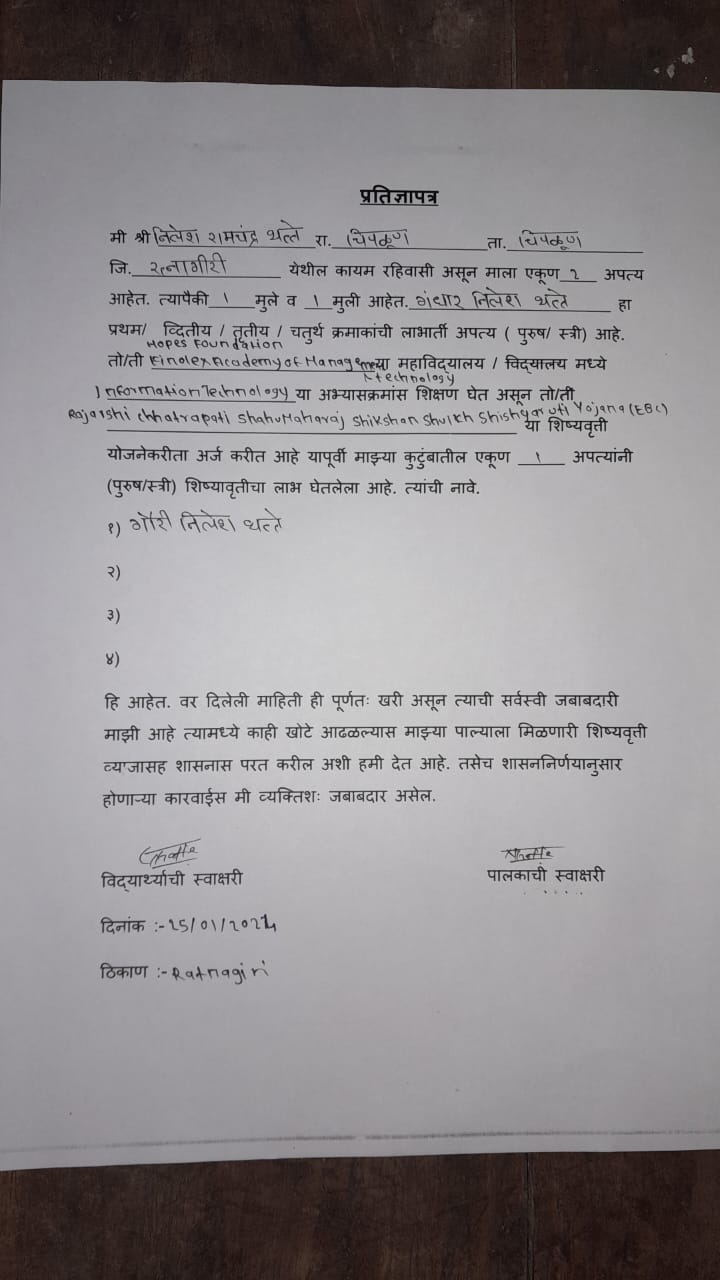 प्रतिज्ञापत्र
मी श्री नितेश रामचंद्र थत्ते रा. चिपळूण ता. चिपळूण
जि. रत्नागीरी येथील कायम रहिवासी असून माला एकूण 2 अपत्य
आहेत. त्यापैकी १ मुले व १ मुली आहेत. गंधार नितेश थत्ते हा
प्रथम/ व्दितीय / तृतीय / चतुर्थ क्रमाकांची लाभार्ती अपत्य ( पुरुष/ स्त्री) आहे.
Hopes Foundation
तो/ती Finolex Academy of Management या महाविद्यालय / विद्यालय मध्ये
& technology
Information Technology या अभ्यासक्रमांस शिक्षण घेत असून तो/ती
Rajarshi chhatrapati shahu Maharaj Shikshan Shulkh Shishyavruti Yojana (EBC)
या शिष्यवृत्ती
योजनेकरीता अर्ज करीत आहे यापूर्वी माझ्या कुटुंबातील एकूण १ अपत्यांनी
(पुरुष/स्त्री) शिष्यावृतीचा लाभ घेतलेला आहे. त्यांची नावे.
१) गौरी नितेश थत्ते
२)
३)
४)
हि आहेत. वर दिलेली माहिती ही पूर्णतः खरी असून त्याची सर्वस्वी जबाबदारी
माझी आहे त्यामध्ये काही खोटे आढळल्यास माझ्या पाल्याला मिळणारी शिष्यवृत्ती
व्याजासह शासनास परत करील अशी हमी देत आहे. तसेच शासननिर्णयानुसार
होणाऱ्या कारवाईस मी व्यक्तिशः जबाबदार असेल.
विद्यार्थ्याची स्वाक्षरी पालकाची स्वाक्षरी
दिनांक :- 25/01/2024
ठिकाण :- Ratnagiri